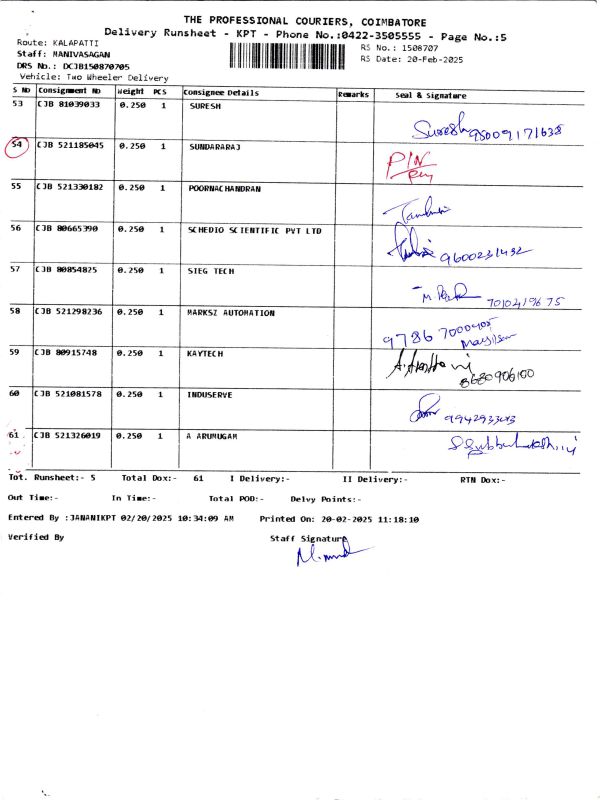 THE PROFESSIONAL COURIERS, COIMBATORE
Delivery Runsheet - KPT - Phone No.:0422-3505555 - Page No.:5
Route: KALAPATTI
RS No.: 1508707
Staff: MANIVASAGAN
RS Date: 20-Feb-2025
DRS No.: DCJB150870705
Vehicle: Two Wheeler Delivery
S No Consignment No Weight PCS Consignee Details Remarks Seal & Signature
53 CJB 81039033 0.250 1 SURESH
Suresh 95009171638
54 CJB 521185045 0.250 1 SUNDARARAJ
P/N
55 CJB 521330182 0.250 1 POORNACHANDRAN
56 CJB 80665390 0.250 1 SCHEDIO SCIENTIFIC PVT LTD
9600231432
57 CJB 80854825 0.250 1 STEG TECH
70102419675
58 CJB 521298236 0.250 1 MARKSZ AUTOMATION
59 CJB 80915748 0.250 1 KAYTECH
8680906100
60 CJB 521081578 0.250 1 INDUSERVE
61 CJB 521326019 0.250 1 A ARUMUGAM
Tot. Runsheet:- 5 Total Dox:- 61 I Delivery:- II Delivery:- RTN Dox:-
Out Time:- In Time:- Total POD:- Delvy Points:-
Entered By :JANANIKPT 02/20/2025 10:34:09 AM Printed On: 20-02-2025 11:18:10
Verified By Staff Signature